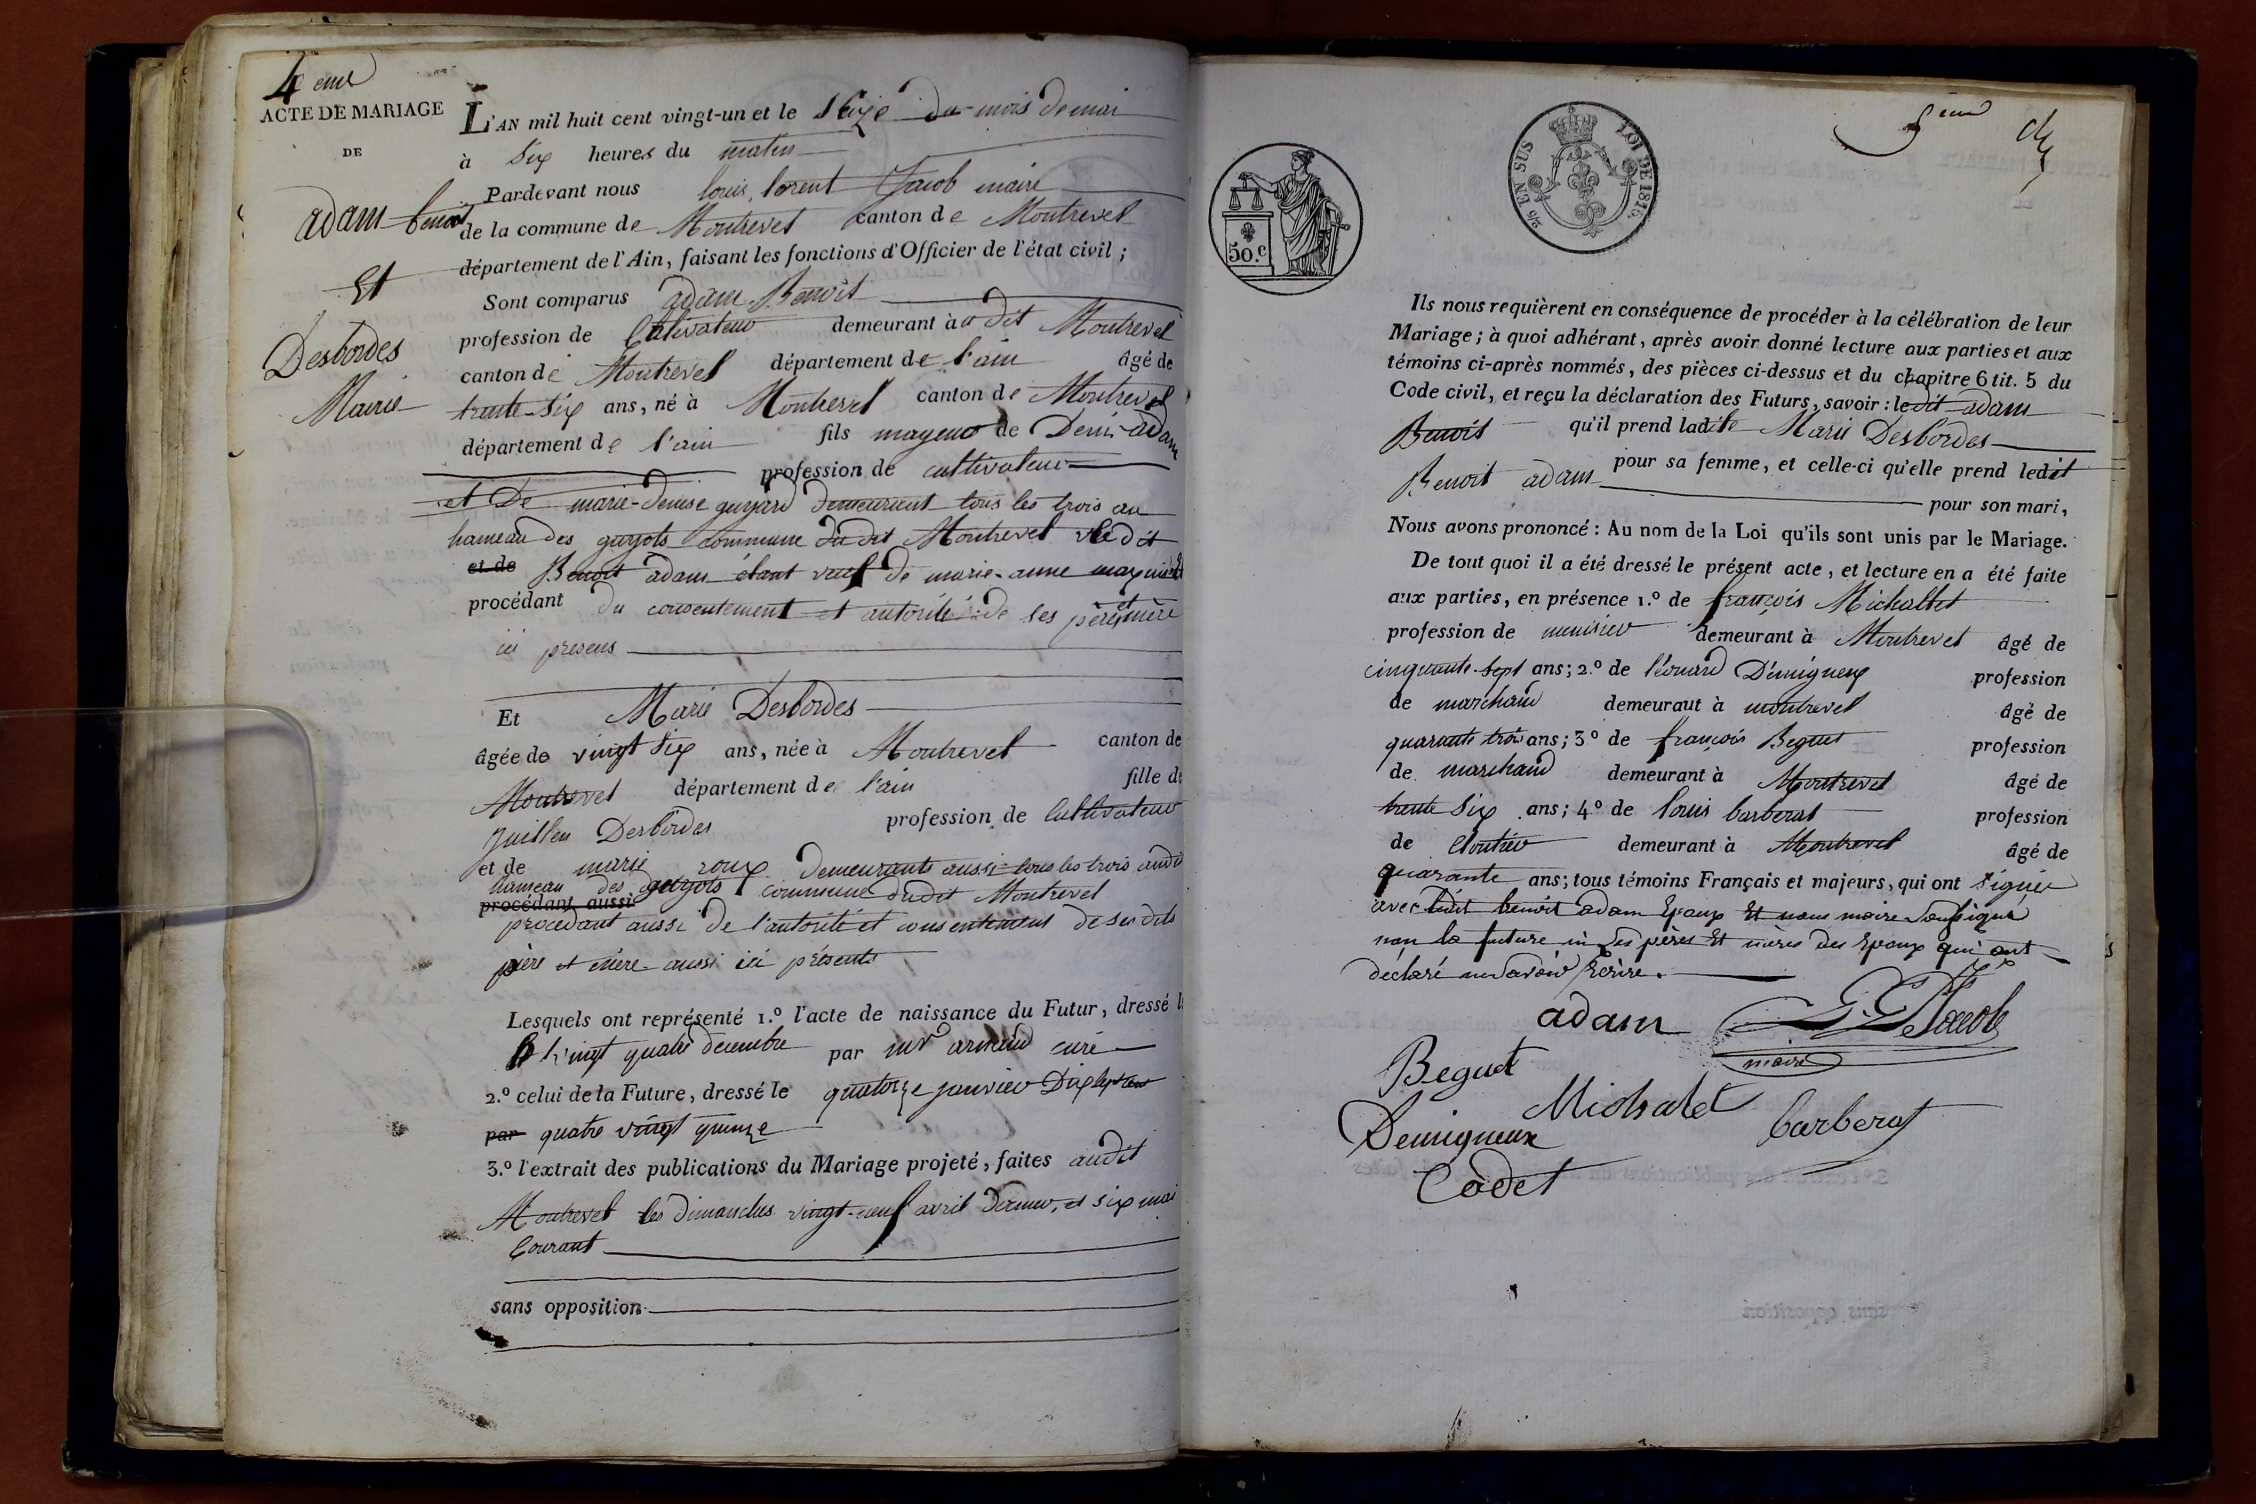 4eme
ACTE DE MARIAGE
DE
adam benoit
Et
Desbordes
Marie
L'AN mil huit cent vingt-un et le seize du mois de mai
à six heures du matin
Pardevant nous louis lorent Jacob maire
de la commune de Montrevel canton de Montrevel
département de l'Ain, faisant les fonctions d'Officier de l'état civil ;
Sont comparus adam Benoit
profession de Cultivateur demeurant à dit Montrevel
canton de Montrevel département de l'ain âgé de
trente-six ans, né à Montrevel canton de Montrevel
département de l'ain fils mageur de Denis adam
profession de cultivateur
et De marie-denise guyard demeurant tous les trois au
hameau des guyots commune du dit Montrevel le dit
et de Benoit adam étant veuf de marie-anne
procédant du consentement et autorité de ses père et mère
ici presens
Et Marie Desbordes
âgée de vingt six ans, née à Montrevel canton de
Montrevel département de l'ain fille de
Juillen Desbordes profession de Cultivateur
et de marie roux demeurants aussi tous les trois audit
hameau des guyots commune dudit Montrevel
procédant aussi
procédant aussi de l'autorité et consentement de ses dits
père et mère aussi ici présents
Lesquels ont représenté 1.º l'acte de naissance du Futur, dressé le
vingt quatre decembre par mr armand curé
2.º celui de la Future, dressé le quatorze janvier Dix sept cent
par quatre vingt quinze
3.º l'extrait des publications du Mariage projeté, faites audit
Montrevel les dimanches vingt-neuf avril dernier, et six mai
Courant
sans opposition
5eme
50.C
2/10 EN SUS
LOI DE 1816.
Ils nous requièrent en conséquence de procéder à la célébration de leur
Mariage ; à quoi adhérant, après avoir donné lecture aux parties et aux
témoins ci-après nommés, des pièces ci-dessus et du chapitre 6 tit. 5 du
Code civil, et reçu la déclaration des Futurs, savoir : le dit adam
Benoit qu'il prend ladite Marie Desbordes
pour sa femme, et celle-ci qu'elle prend ledit
Benoit adam pour son mari,
Nous avons prononcé : Au nom de la Loi qu'ils sont unis par le Mariage.
De tout quoi il a été dressé le présent acte, et lecture en a été faite
aux parties, en présence 1.º de françois Michallet
profession de menisier demeurant à Montrevel âgé de
cinquante-sept ans ; 2.º de Léonard Démigneux profession
de marchand demeurant à montrevel âgé de
quarante trois ans ; 3º de françois Beguet profession
de marchand demeurant à Montrevel âgé de
trente six ans ; 4º de louis barberat profession
de Cloutier demeurant à Montrevel âgé de
quarante ans ; tous témoins Français et majeurs, qui ont signés
avec ledit benoit adam Epoux Et nous maire soussigné
non la future ni les pères Et mères des Epoux qui ont
declaré ne savoir Ecrire.
adam
L. L. Jacob
maire
Beguet
Michalet
Demigneux
barberat
Cadet